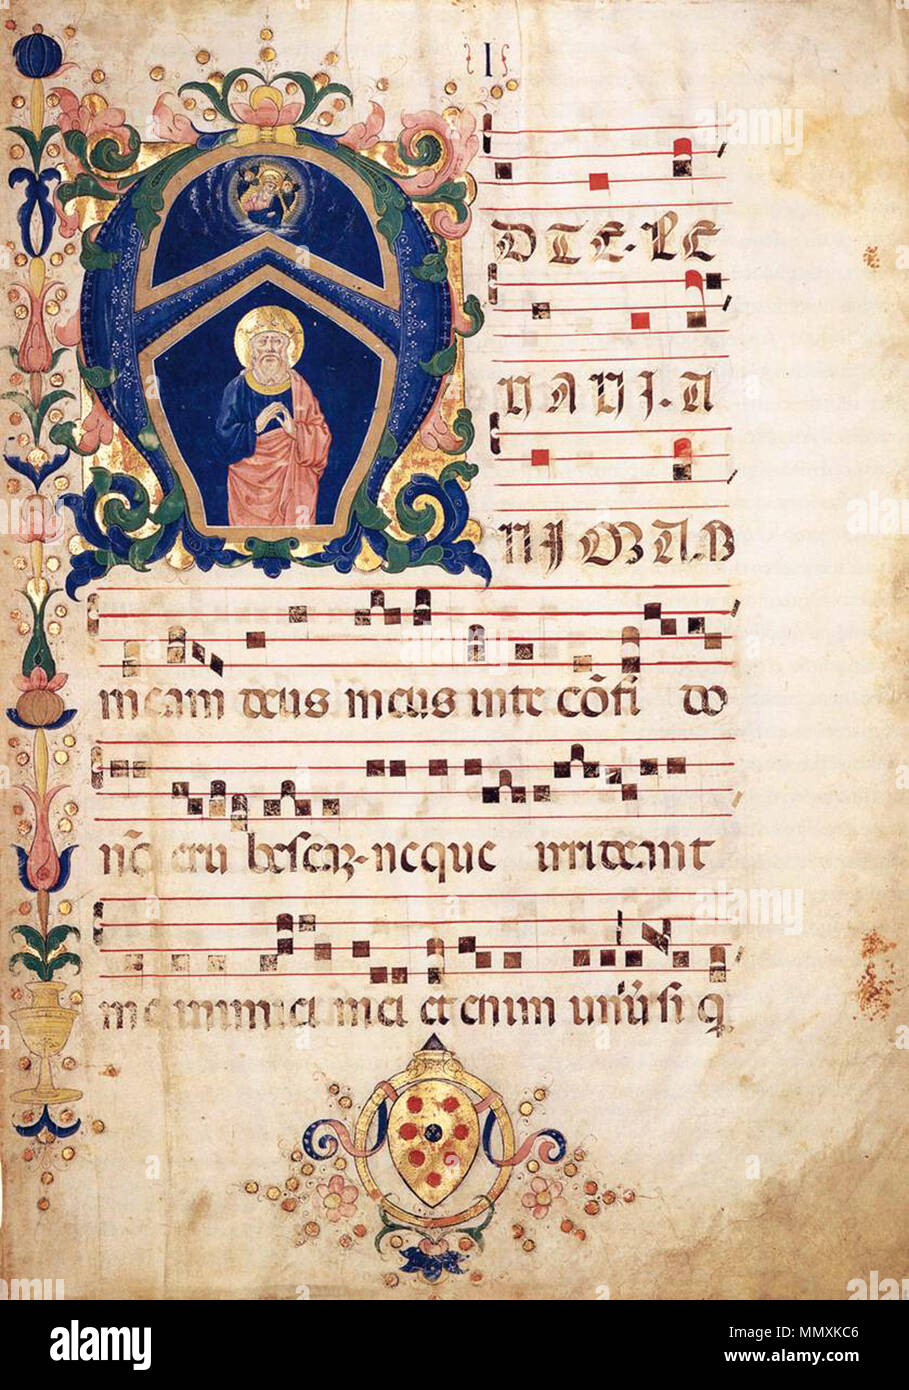 I
A D TE·LE
VAVI·A
NIMAM
meam deus meus in te cōfi do
nō eru bescaꝫ·neque irrideant
me inimici mei et enim uniūsi q̄
alamy
Image ID: MMXKC6
www.alamy.com